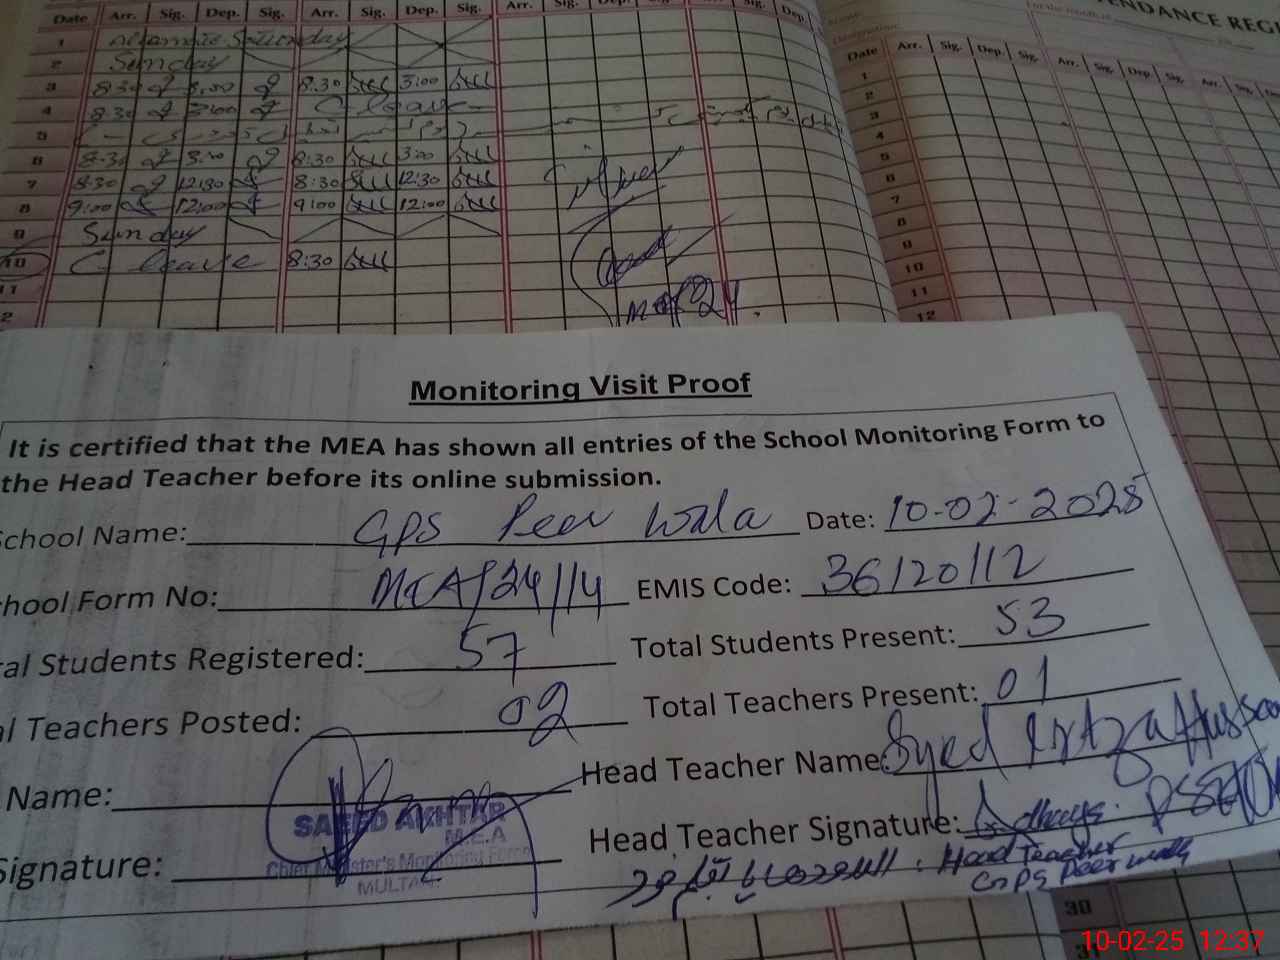 Date Arr. Sig. Dep. Sig. Arr. Sig. Dep. Sig. Arr. Sig. Dep. Sig. Arr. Sig. Dep.
1 Saturday
2 Sunday
3 8:30 3:00 8:30 3:00
4 8:30 3:00 C. leave
5
6 8:30 3:00 8:30 3:00
7 8:30 12:30 8:30 12:30
8 9:00 12:00 9:00 12:00
9 Sunday
10 C. leave 8:30
11
12
ATTENDANCE REGI
For the month of
Date Arr. Sig. Dep. Sig. Arr. Sig. Dep. Sig. Arr. Sig.
1
2
3
4
5
6
7
8
9
10
11
12
Monitoring Visit Proof
It is certified that the MEA has shown all entries of the School Monitoring Form to
the Head Teacher before its online submission.
School Name: GPS Peer Wala Date: 10-02-2025
School Form No: MEA/24/14 EMIS Code: 36120112
Total Students Registered: 57 Total Students Present: 53
Total Teachers Posted: 02 Total Teachers Present: 01
Name: Head Teacher Name: Syed Irtza Hussa
Signature: Head Teacher Signature:
SAEED AKHTAR
M.E.A
Chief Minister's Monitoring Force
MULTAN
Head Teacher
GPS Peer wala
30
31
10-02-25 12:37